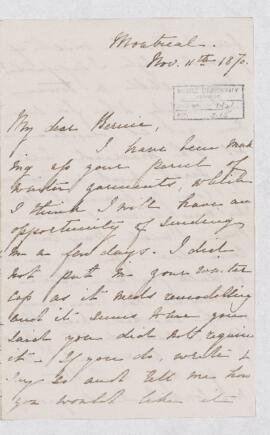 Montreal.
Nov. 11th 1870.
My dear Bernie,
I have been mak
ing up your parcel of
winter garments, which
I think I will have an
opportunity of sending
in a few days. I did
not put in your winter
cap as it needs remodelling
and it seems to me you
said you did not require
it - If you do, write
so and tell me how
you would like it